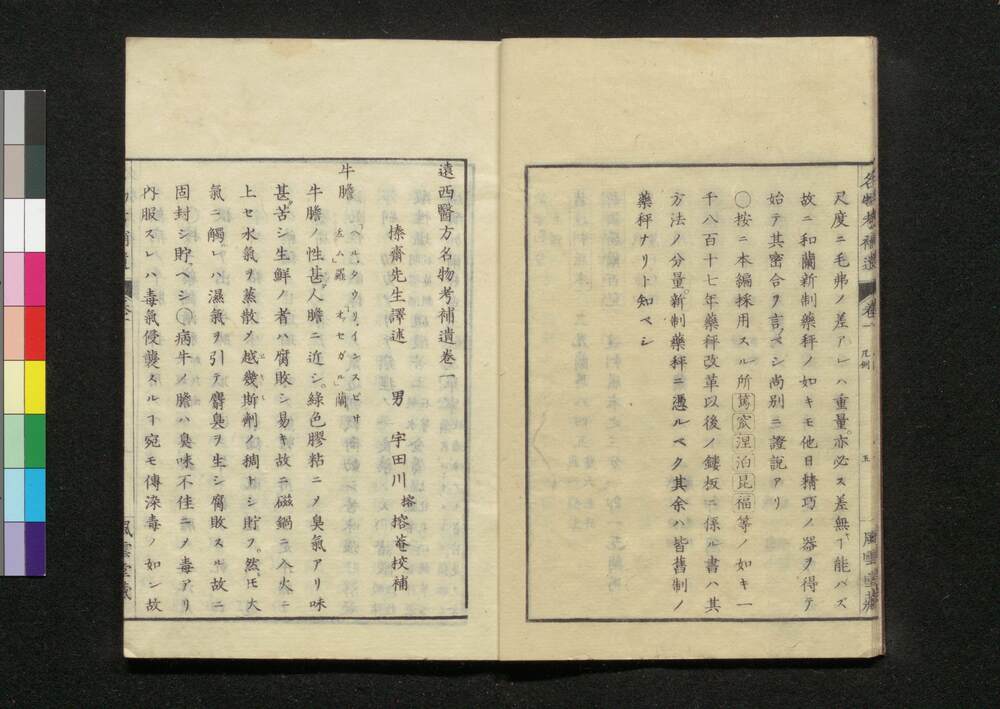 名物考補遺 卷一 凡例 五 風雲堂藏
尺度ニ毛弗ノ差アレハ重量亦必ス差無ヿ能バズ
故ニ和蘭新制藥秤ノ如キモ他日精巧ノ器ヲ得テ
始テ其密合ヲ言ベシ尚別ニ證説アリ
〇按ニ本編採用スル所篤宻涅泊昆福等ノ如キ一
千八百十七年藥秤改革以後ノ鏤板ニ係ル書ハ其
方法ノ分量新制藥秤ニ憑ルベク其余ハ皆舊制ノ
藥秤ナリト知ベシ
遠西醫方名物考補遺卷一
榛齋先生譯述 男 宇田川 榕 榕菴校補
牛膽
牛膽ノ性甚人膽ニ近シ綠色膠粘ニメ臭氣アリ味
甚苦シ生鮮ノ者ハ腐敗シ易キ故ニ磁鍋ニ入火ニ
上セ水氣ヲ蒸散メ越幾斯劑ノ稠トシ貯フ然モ大
氣ニ觸レハ濕氣ヲ引テ霨臭ヲ生シ腐敗スル故ニ
固封シ貯ベシ〇病牛ノ膽ハ臭味不佳ニメ毒アリ
內服スレハ毒氣侵襲スルヿ宛モ傳染毒ノ如シ故
卷一
風雲堂藏